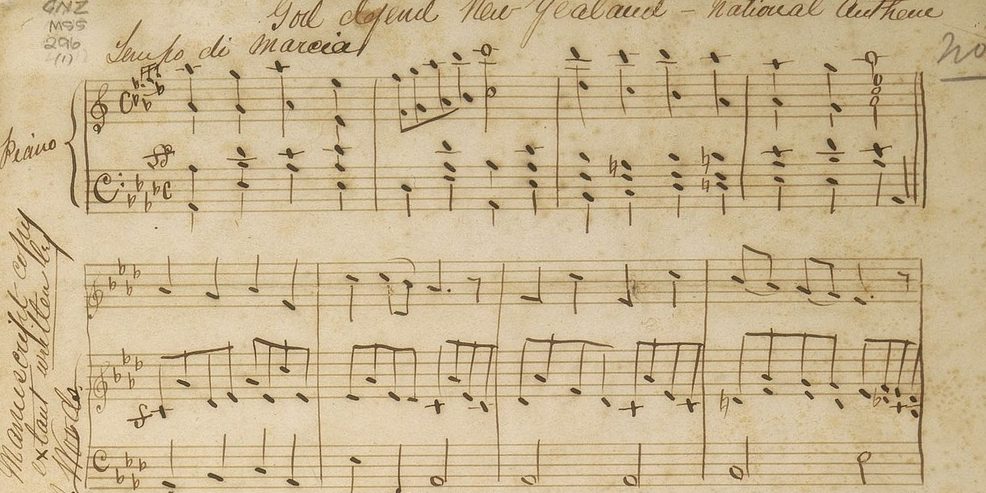 GNZ
MSS
296
God defend New Zealand - National Anthem
Tempo di Marcia
no
Piano
ff
Manuscript copy
extant written by
Woods.
f